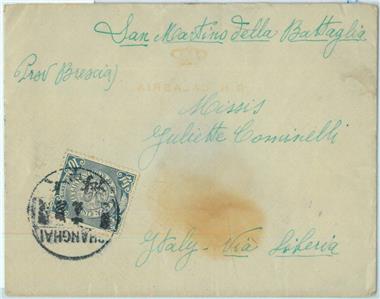 San Martino della Battaglia
R. N. CALABRIA
(Prov Brescia)
Missis
Guliette Cominelli
Italy - Via Siberia
SHANGHAI